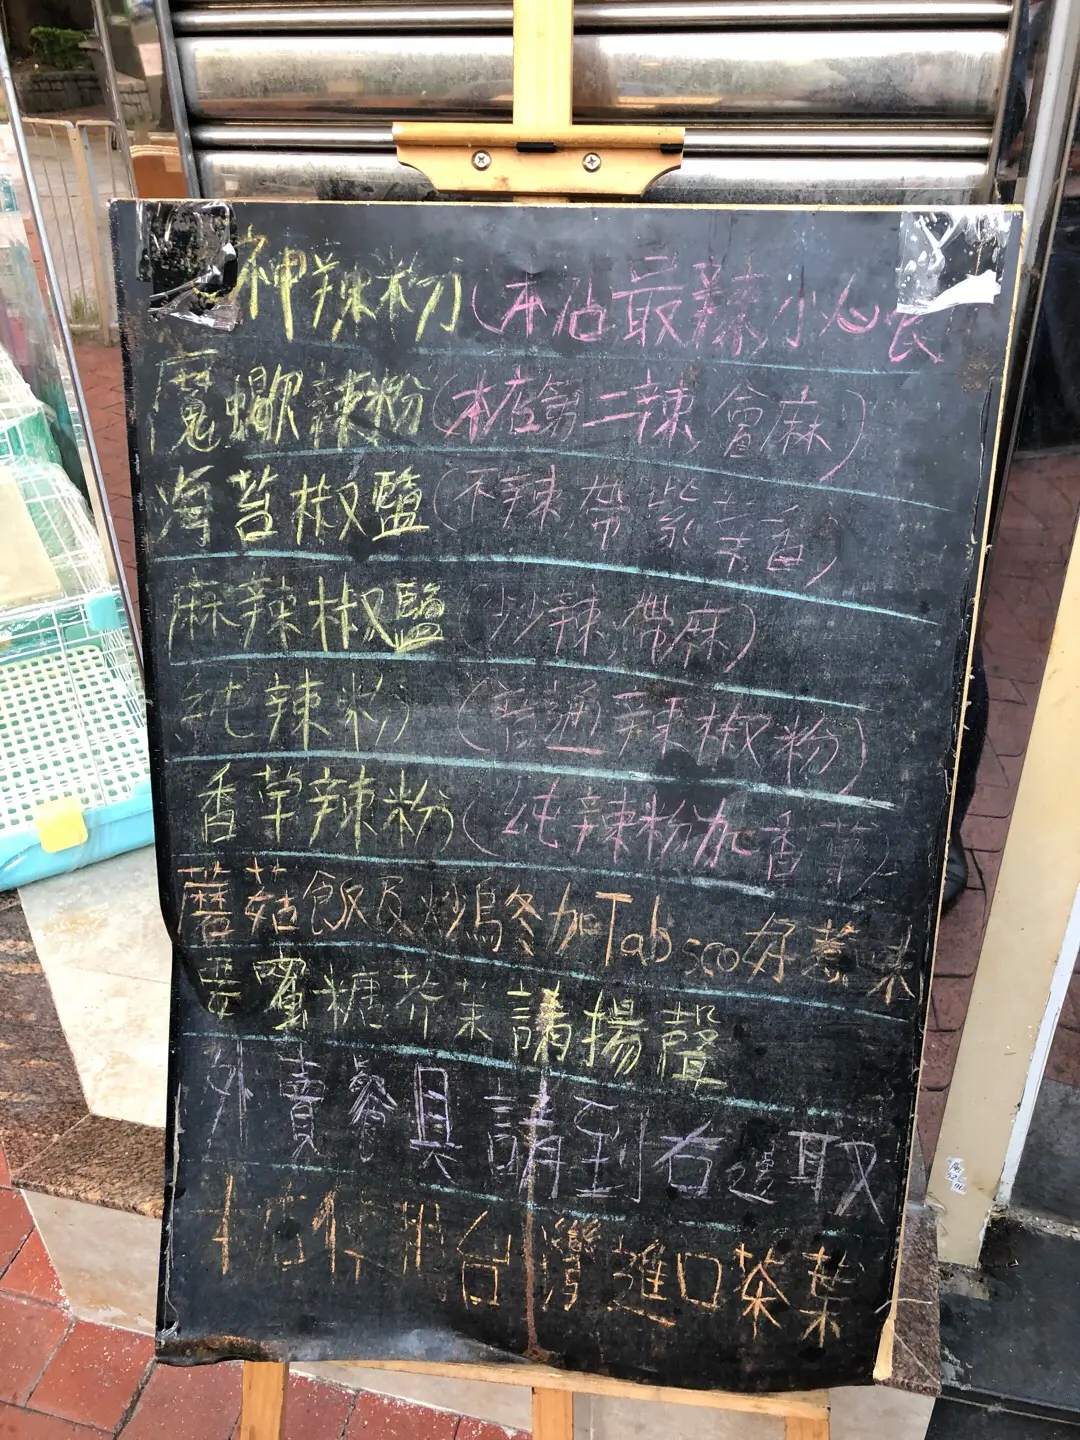 神辣粉(本佔最辣小心食
魔蠍辣粉(本店第二辣,會麻)
海苔椒鹽(不辣帶紫菜香)
麻辣椒鹽 少辣,帶麻)
純辣粉 (普通辣椒粉)
香草辣粉(純辣粉加香草)
蘑菇飯及炒烏冬加Tabsco好惹味
要蜜糖芥茉請揚聲
外賣餐具請到右邊取
本店使用台灣進口茶葉